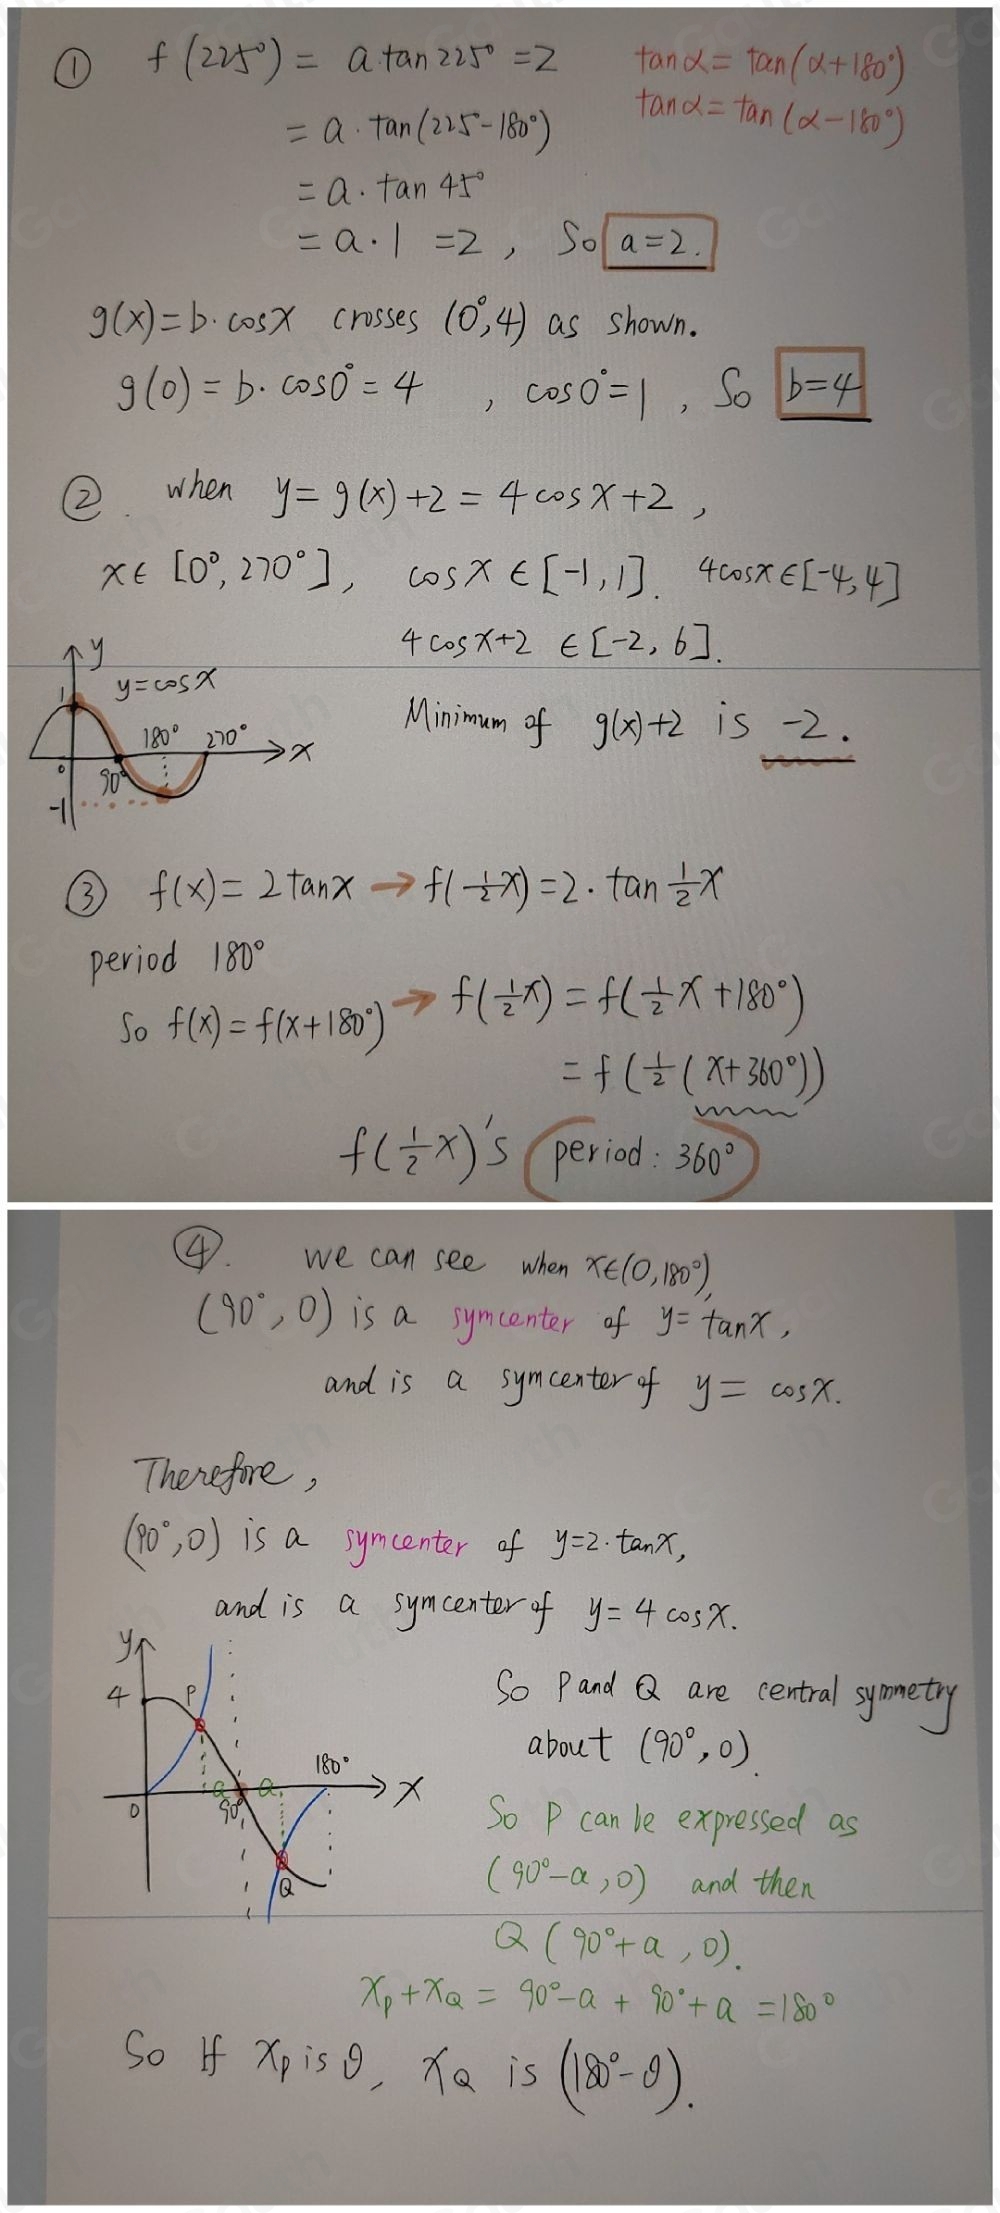 ① f(225°) = a·tan225° = 2
tanα = tan(α+180°)
tanα = tan(α-180°)
= a·tan(225°-180°)
= a·tan 45°
= a·1 = 2, So a=2.
g(x)=b·cosx crosses (0°,4) as shown.
g(0) = b·cos0° = 4, cos0°=1, So b=4
②. when y= g(x)+2 = 4cosx+2,
x∈[0°,270°], cosx∈[-1,1]. 4cosx∈[-4,4]
4cosx+2 ∈[-2, 6].
y
1
y=cosx
180° 270° x
0
90°
-1
Minimum of g(x)+2 is -2.
③ f(x)= 2tanx → f(½x)=2·tan½x
period 180°
So f(x)=f(x+180°) → f(½x) = f(½x+180°)
= f(½(x+360°))
f(½x)'s period: 360°
④. we can see when x∈(0,180°),
(90°,0) is a symcenter of y= tanx,
and is a symcenter of y= cosx.
Therefore,
(90°,0) is a symcenter of y=2·tanx,
and is a symcenter of y= 4cosx.
y
4
P
180°
x
0
a a
90°
Q
So P and Q are central symmetry
about (90°,0).
So P can be expressed as
(90°-a,0) and then
Q(90°+a,0).
xP+xQ = 90°-a + 90°+a =180°
So If xP is θ, xQ is (180°-θ).